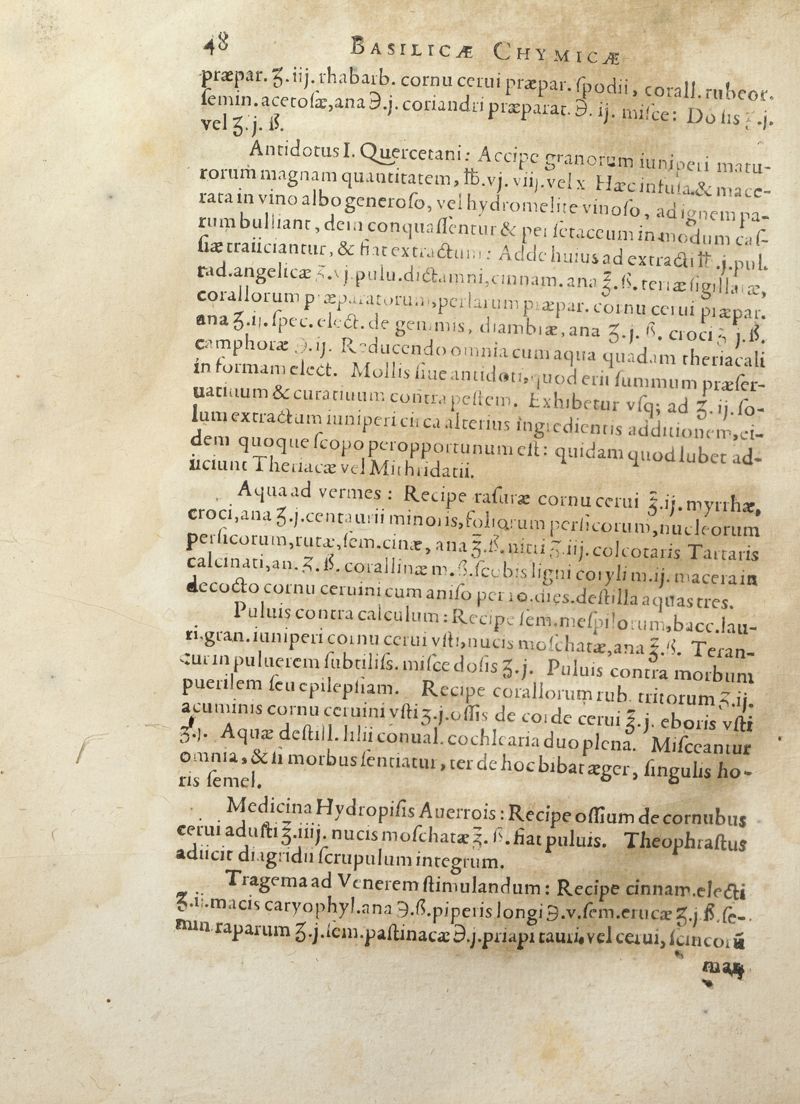 48 BASILICÆ CHYMICÆ
præpar. ʒ.iij. rhabarb. cornu cerui præpar. ſpodii, corall. rubeor.
ſemin. acetoſæ, ana ℈.j. coriandri præparat. ℈. ij. miſce: Doſis ʒ.j.
vel ʒ. j. ß.
Antidotus I. Quercetani: Accipe granorum iuniperi matu-
rorum magnam quantitatem, ℔.vj. viij. vel x Hæc infuſa & mace-
rata in vino albo generoſo, vel hydromelite vinoſo, ad ignem pa-
rum bulliant, dein conquaſſentur & per ſetaceum in modum caſ-
ſiæ traiiciantur, & fiat extractum: Adde huius ad extracti ℔.j. pul.
rad. angelicæ ʒ.vj. pulu. dictamni, cinnam. ana ℥.ß. terræ ſigillatæ,
corallorum præparatorum, perlarum præpar. cornu cerui præpar.
ana ʒ.ij. ſpec. elect. de gemmis, diambræ, ana ʒ.j. ß. croci ʒ j.ß.
camphoræ ℈.ij. Reducendo omnia cum aqua quadam theriacali
in formam elect. Mollis ſiue antidoti, quod erit ſummum præſer-
uatiuum & curatiuum contra peſtem. Exhibetur vſq; ad ʒ.ij. ſo-
lum extractum iuniperi circa alterius ingredientis additionem, ei-
dem quoque ſcopo peropportunum eſt: quidam quod lubet ad-
iiciunt Theriacæ vel Mithridatii.
Aqua ad vermes: Recipe raſuræ cornu cerui ℥.ij. myrrhæ,
croci, ana ʒ.j. centaurii minoris, foliorum perſicorum, nucleorum
perſicorum, rutæ, ſem. cinæ, ana ℥.ß. nitri ℥.iij. colcotaris Tartaris
calcinati, an. ℥. ß. corallinæ m.ß. ſcobis ligni coryli m.ij. macera in
decocto cornu ceruini cum aniſo per 10. dies. deſtilla aquas tres.
Puluis contra calculum: Recipe ſem. meſpilorum, bacc. lau-
ri. gran. iuniperi cornu cerui vſti, nucis moſchatæ, ana ℥.ß. Teran-
tur in puluerem ſubtiliſs. miſce doſis ʒ.j. Puluis contra morbum
puerilem ſeu epilepſiam. Recipe corallorum rub. tritorum ʒ.ij.
acuminis cornu ceruini vſti ʒ.j. oſſis de corde cerui ʒ.j. eboris vſti
ʒ.j. Aquæ deſtill. lilii conual. cochlearia duo plena. Miſceantur
omnia, & ſi morbus ſentiatur, ter de hoc bibat æger, ſingulis ho-
ris ſemel.
Medicina Hydropiſis Auerrois: Recipe oſſium de cornubus
cerui aduſti ʒ.iiij. nucis moſchatæ ʒ. ß. fiat puluis. Theophraſtus
adiicit diagridii ſcrupulum integrum.
Tragema ad Venerem ſtimulandum: Recipe cinnam. electi
ʒ.ij. macis caryophyl. ana ℈.ß. piperis longi ℈.v. ſem. erucæ ʒ.j.ß. ſe-
min. raparum ʒ.j. ſem. paſtinacæ ℈.j. priapi tauri, vel cerui, ſcincorū